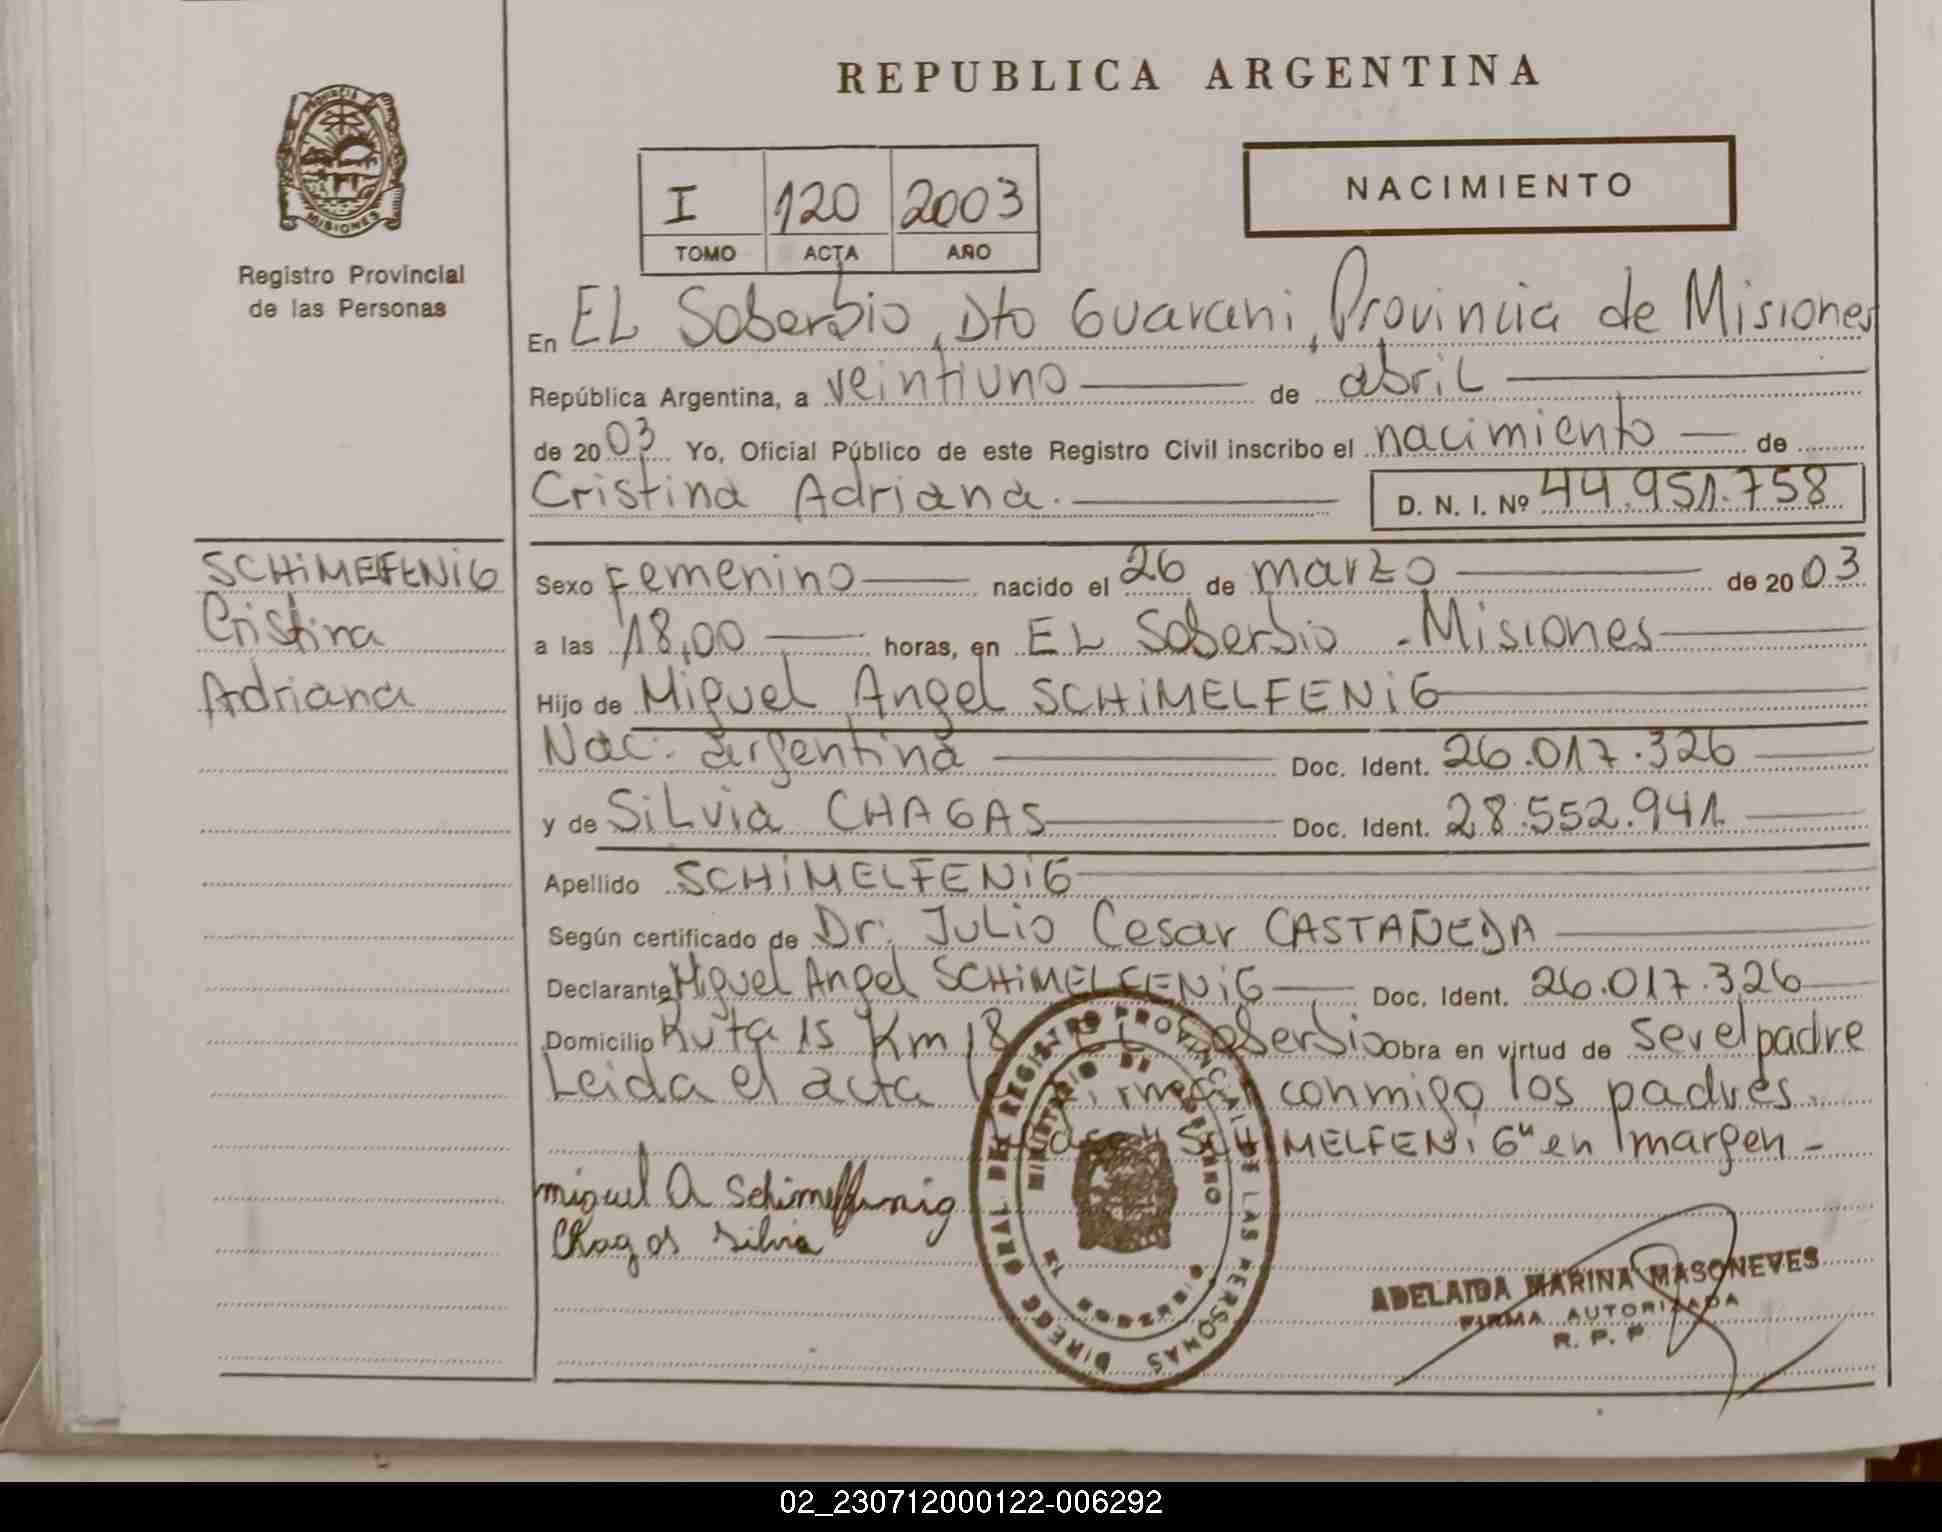 REPUBLICA ARGENTINA
PROVINCIA
MISIONES
Registro Provincial
de las Personas
I 120 2003
TOMO ACTA AÑO
NACIMIENTO
En EL Soberbio, Dto Guarani, Provincia de Misiones
República Argentina, a veintiuno de abril
de 2003 Yo, Oficial Público de este Registro Civil inscribo el nacimiento de
Cristina Adriana. D. N. I. Nº 44.951.758
SCHiMEFENiG
Cristina
Adriana
Sexo Femenino nacido el 26 de marzo de 2003
a las 18,00 horas, en EL Soberbio - Misiones
Hijo de Miguel Angel SCHiMELFENiG
Nac. argentina Doc. Ident. 26.017.326
y de SiLvia CHAGAS Doc. Ident. 28.552.941
Apellido SCHiMELFENiG
Según certificado de Dr. JuLio Cesar CASTAÑEDA
Declarante Miguel Angel SCHiMELFENiG Doc. Ident. 26.017.326
Domicilio Ruta 15 Km 18 EL Soberbio Obra en virtud de ser el padre
Leida el acta conmigo los padres.
SCHiMELFENiG" en margen -
miguel A Schimelfenig
Chagas Silvia
DIRECC GRAL DEL REGISTRO PROVINCIAL DE LAS PERSONAS
MINISTERIO DE GOBIERNO
MISIONES
ADELAIDA MARINA MASONEVES
FIRMA AUTORIZADA
R. P. P.
02_230712000122-006292